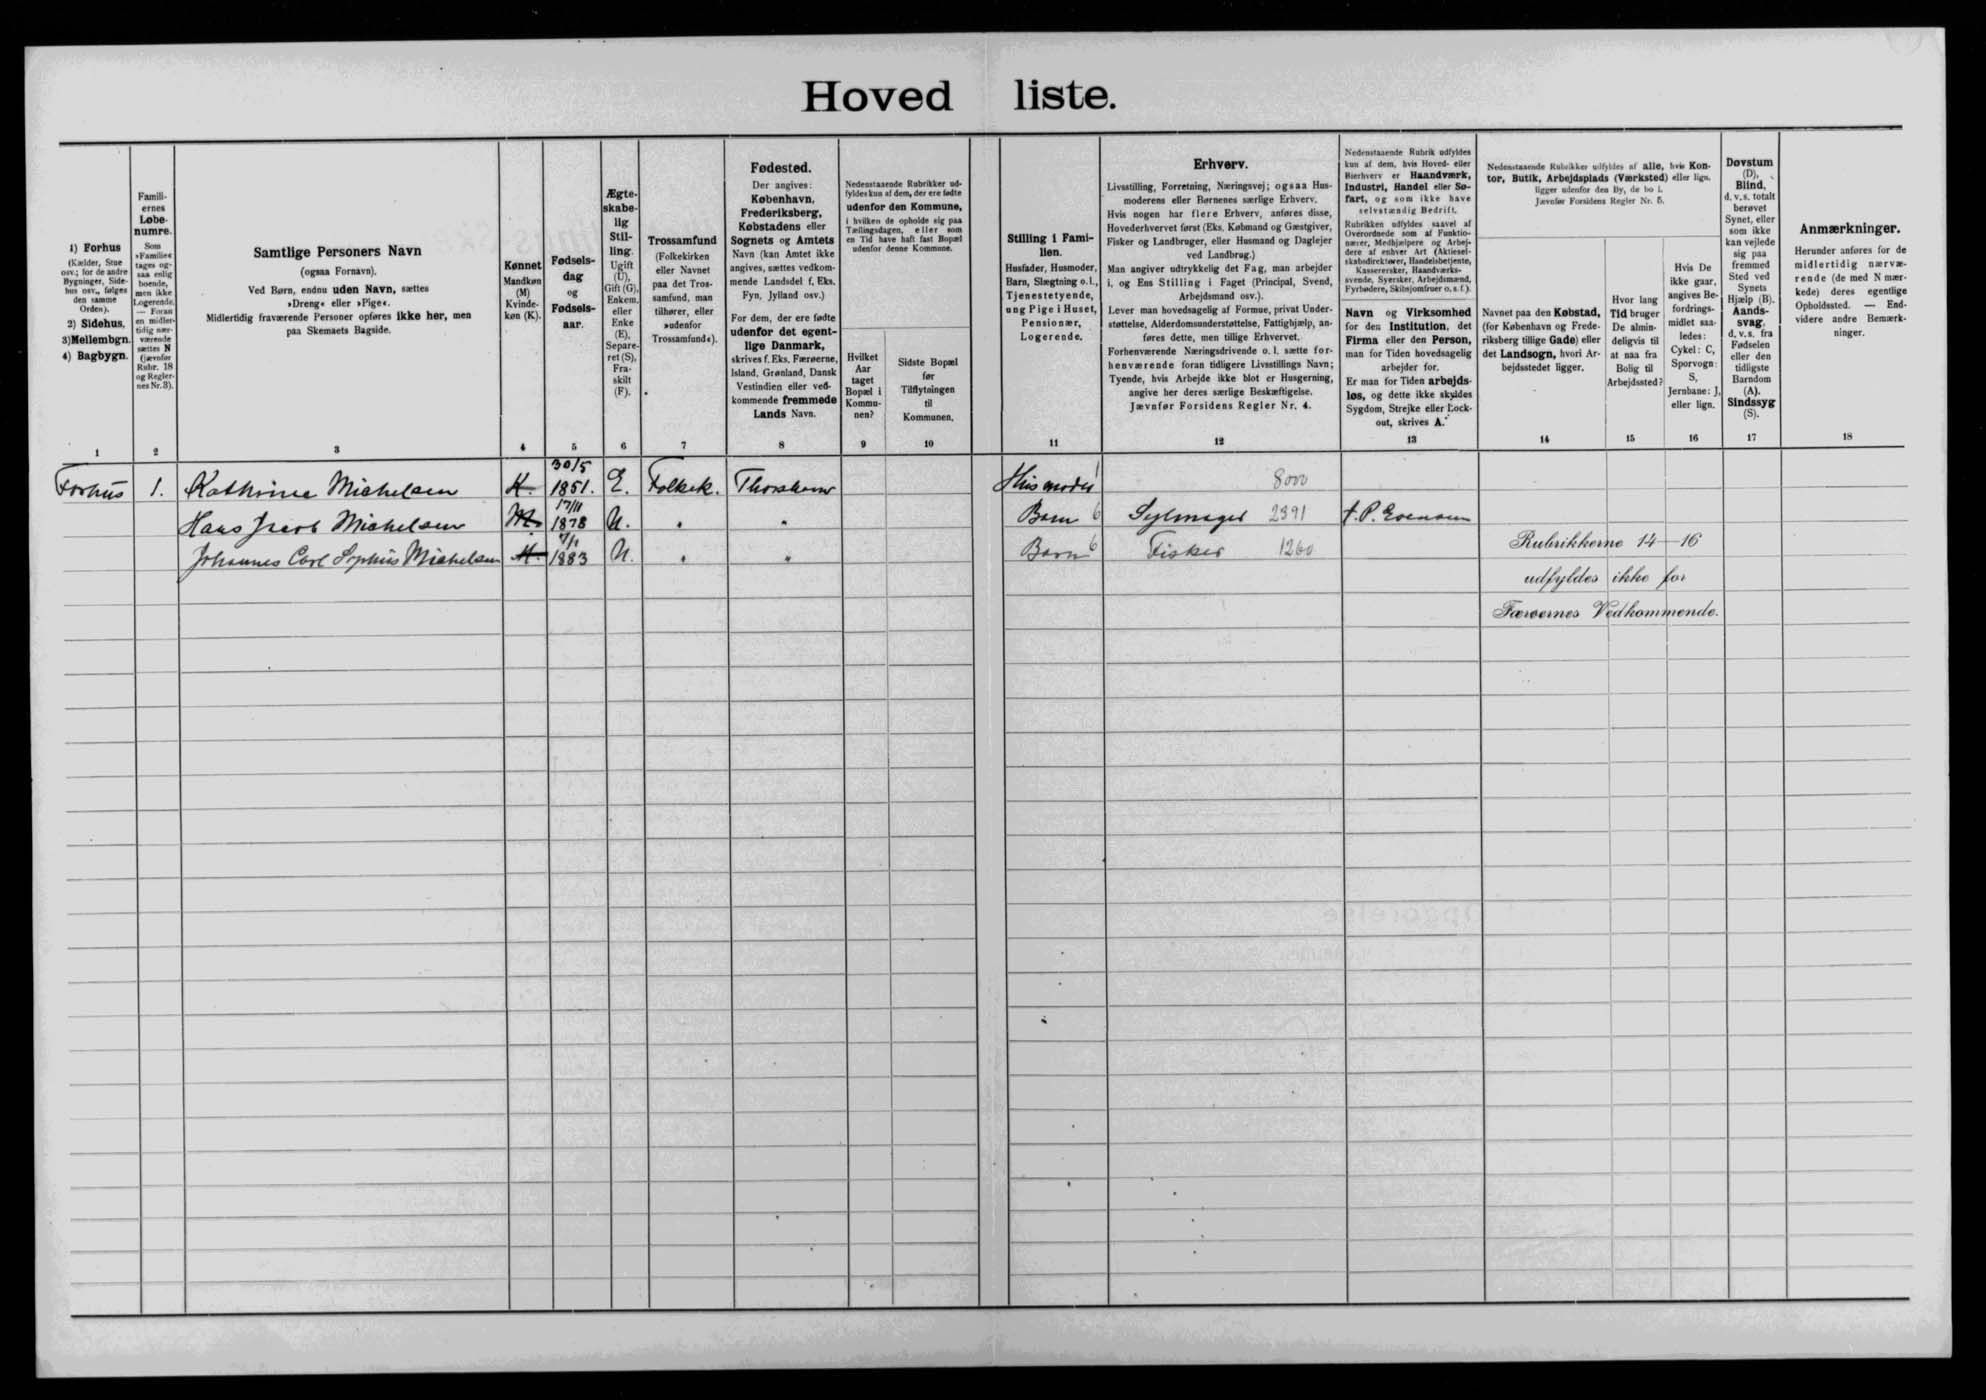 Hoved liste.
1) Forhus
(Kælder, Stue
osv.; for de andre
Bygninger, Side-
hus osv., følges
den samme
Orden).
2) Sidehus,
3) Mellembgn.
4) Bagbygn.
Famili-
ernes
Løbe-
numre.
Som
»Familie«
tages og-
saa enlig
boende,
men ikke
Logerende.
— Foran
en midler-
tidig nær-
værende
sættes N
(jævnfør
Rubr. 18
og Regler-
nes Nr. 3).
Samtlige Personers Navn
(ogsaa Fornavn).
Ved Børn, endnu uden Navn, sættes
»Dreng« eller »Pige«.
Midlertidig fraværende Personer opføres ikke her, men
paa Skemaets Bagside.
Kønnet
Mandkøn
(M)
Kvinde-
køn (K).
Fødsels-
dag
og
Fødsels-
aar.
Ægte-
skabe-
lig
Stil-
ling.
Ugift
(U),
Gift (G),
Enkem.
eller
Enke
(E),
Separe-
ret (S),
Fra-
skilt
(F).
Trossamfund
(Folkekirken
eller Navnet
paa det Tros-
samfund, man
tilhører, eller
»udenfor
Trossamfund«).
Fødested.
Der angives:
København,
Frederiksberg,
Købstadens eller
Sognets og Amtets
Navn (kan Amtet ikke
angives, sættes vedkom-
mende Landsdel f. Eks.
Fyn, Jylland osv.)
For dem, der ere fødte
udenfor det egent-
lige Danmark,
skrives f. Eks. Færøerne,
Island, Grønland, Dansk
Vestindien eller ved-
kommende fremmede
Lands Navn.
Nedenstaaende Rubrikker ud-
fyldes kun af dem, der ere fødte
udenfor den Kommune,
i hvilken de opholde sig paa
Tællingsdagen, eller som
en Tid have haft fast Bopæl
udenfor denne Kommune.
Hvilket
Aar
taget
Bopæl i
Kommu-
nen?
Sidste Bopæl
før
Tilflytningen
til
Kommunen.
Stilling i Fami-
lien.
Husfader, Husmoder,
Barn, Slægtning o. l.,
Tjenestetyende,
ung Pige i Huset,
Pensionær,
Logerende.
Erhverv.
Livsstilling, Forretning, Næringsvej; ogsaa Hus-
moderens eller Børnenes særlige Erhverv.
Hvis nogen har flere Erhverv, anføres disse,
Hovederhvervet først (Eks. Købmand og Gæstgiver,
Fisker og Landbruger, eller Husmand og Daglejer
ved Landbrug.)
Man angiver udtrykkelig det Fag, man arbejder
i, og Ens Stilling i Faget (Principal, Svend,
Arbejdsmand osv.).
Lever man hovedsagelig af Formue, privat Under-
støttelse, Alderdomsunderstøttelse, Fattighjælp, an-
føres dette, men tillige Erhvervet.
Forhenværende Næringsdrivende o. l. sætte for-
henværende foran tidligere Livsstillings Navn;
Tyende, hvis Arbejde ikke blot er Husgerning,
angive her deres særlige Beskæftigelse.
Jævnfør Forsidens Regler Nr. 4.
Nedenstaaende Rubrik udfyldes
kun af dem, hvis Hoved- eller
Bierhverv er Haandværk,
Industri, Handel eller Sø-
fart, og som ikke have
selvstændig Bedrift.
Rubrikken udfyldes saavel af
Overordnede som af Funktio-
nærer, Medhjælpere og Arbej-
dere af enhver Art (Aktiesel-
skabsdirektører, Handelsbetjente,
Kasserersker, Haandværks-
svende, Syersker, Arbejdsmænd,
Fyrbødere, Skibsjomfruer o. s. f.).
Navn og Virksomhed
for den Institution, det
Firma eller den Person,
man for Tiden hovedsagelig
arbejder for.
Er man for Tiden arbejds-
løs, og dette ikke skyldes
Sygdom, Strejke eller Lock-
out, skrives A.
Nedenstaaende Rubrikker udfyldes af alle, hvis Kon-
tor, Butik, Arbejdsplads (Værksted) eller lign.
ligger udenfor den By, de bo i.
Jævnfør Forsidens Regler Nr. 5.
Navnet paa den Købstad,
(for København og Frede-
riksberg tillige Gade) eller
det Landsogn, hvori Ar-
bejdsstedet ligger.
Hvor lang
Tid bruger
De almin-
deligvis til
at naa fra
Bolig til
Arbejdssted?
Hvis De
ikke gaar,
angives Be-
fordrings-
midlet saa-
ledes:
Cykel: C,
Sporvogn:
S,
Jernbane: J,
eller lign.
Døvstum
(D),
Blind,
d. v. s. totalt
berøvet
Synet, eller
som ikke
kan vejlede
sig paa
fremmed
Sted ved
Synets
Hjælp (B).
Aands-
svag,
d. v. s. fra
Fødselen
eller den
tidligste
Barndom
(A).
Sindssyg
(S).
Anmærkninger.
Herunder anføres for de
midlertidig nærvæ-
rende (de med N mær-
kede) deres egentlige
Opholdssted. — End-
videre andre Bemærk-
ninger.
1 2 3 4 5 6 7 8 9 10 11 12 13 14 15 16 17 18
Forhus 1. Kathrine Michelsen K. 30/5 1851. E. Folkek. Thorshavn Husmoder 1 8000
Hans Jacob Michelsen M. 17/11 1878 U. " " Barn 6 Sejlmager 2391 J. P. Evensen
Johannes Carl Sophus Michelsen M. 7/1 1883 U. " " Barn 6 Fisker 1260
Rubrikkerne 14–16
udfyldes ikke for
Færøernes Vedkommende.